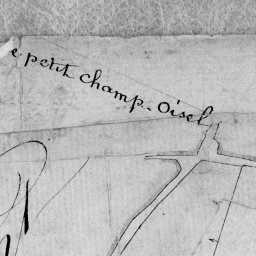 e petit champ-Oisel